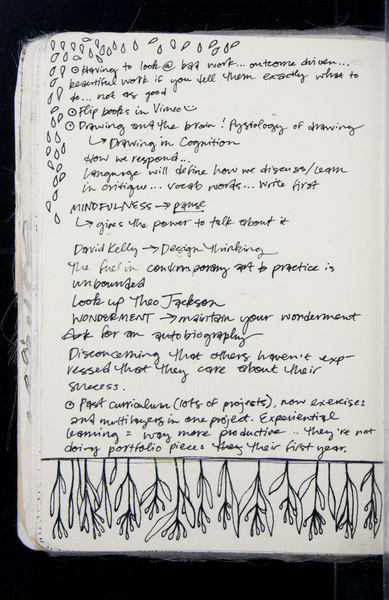 ⊙ Having to look @ bad work... outcome driven...
beautiful work if you tell them exactly what to
do... not as good
⊙ Flip books in Vimeo
⊙ Drawing and the brain! Pysiology of drawing
↳ Drawing in Cognition
How we respond...
Language will define how we discuss/learn
in critique... vocab words... write first
MINDFULNESS → pause
↳ gives the power to talk about it
David Kelly → Design Thinking
The fuel in contemporary art & practice is
unbounded
Look up Theo Jackson
WONDERMENT → maintain your wonderment
for an autobiography
Disconcerning that others haven't exp-
ressed that they care about their
success.
⊙ Past curriculum (lots of projects). now exercises
and multilayers in one project. Experiential
learning = way more productive... they're not
doing portfolio pieces they their first year.